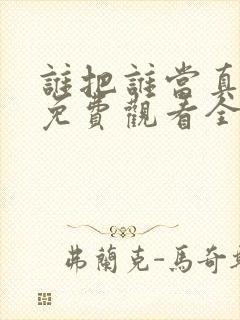 誰把誰當真
免費觀看全
弗蘭克-馬奇